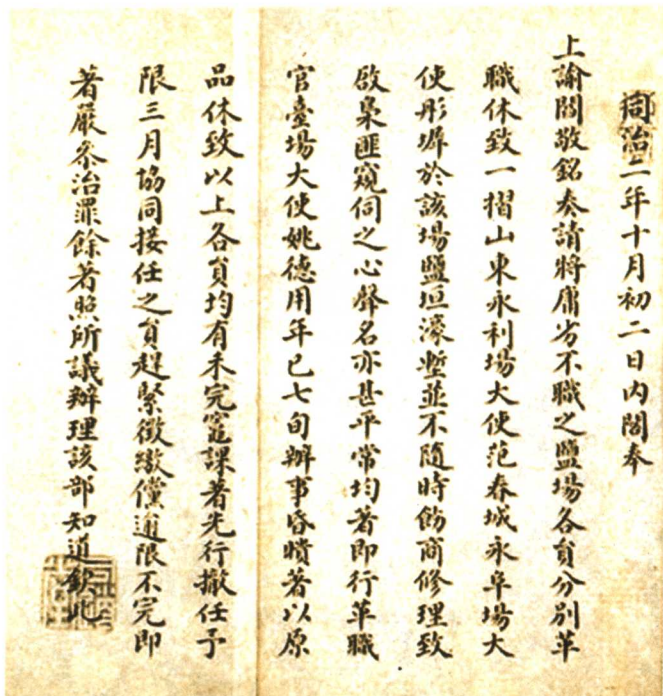 同治二年十月初二日內閣奉
上諭閻敬銘奏請將庸劣不職之鹽場各員分別革
職休致一摺山東永利場大使范春城永阜場大
使彤墀於該場鹽垣濠塹並不隨時飭商修理致
啟梟匪窺伺之心聲名亦甚平常均著即行革職
官臺場大使姚德用年已七旬辦事昏聵著以原
品休致以上各員均有未完竈課著先行撤任予
限三月協同接任之員趕緊徵繳儻逾限不完即
著嚴叅治罪餘著照所議辦理該部知道欽此